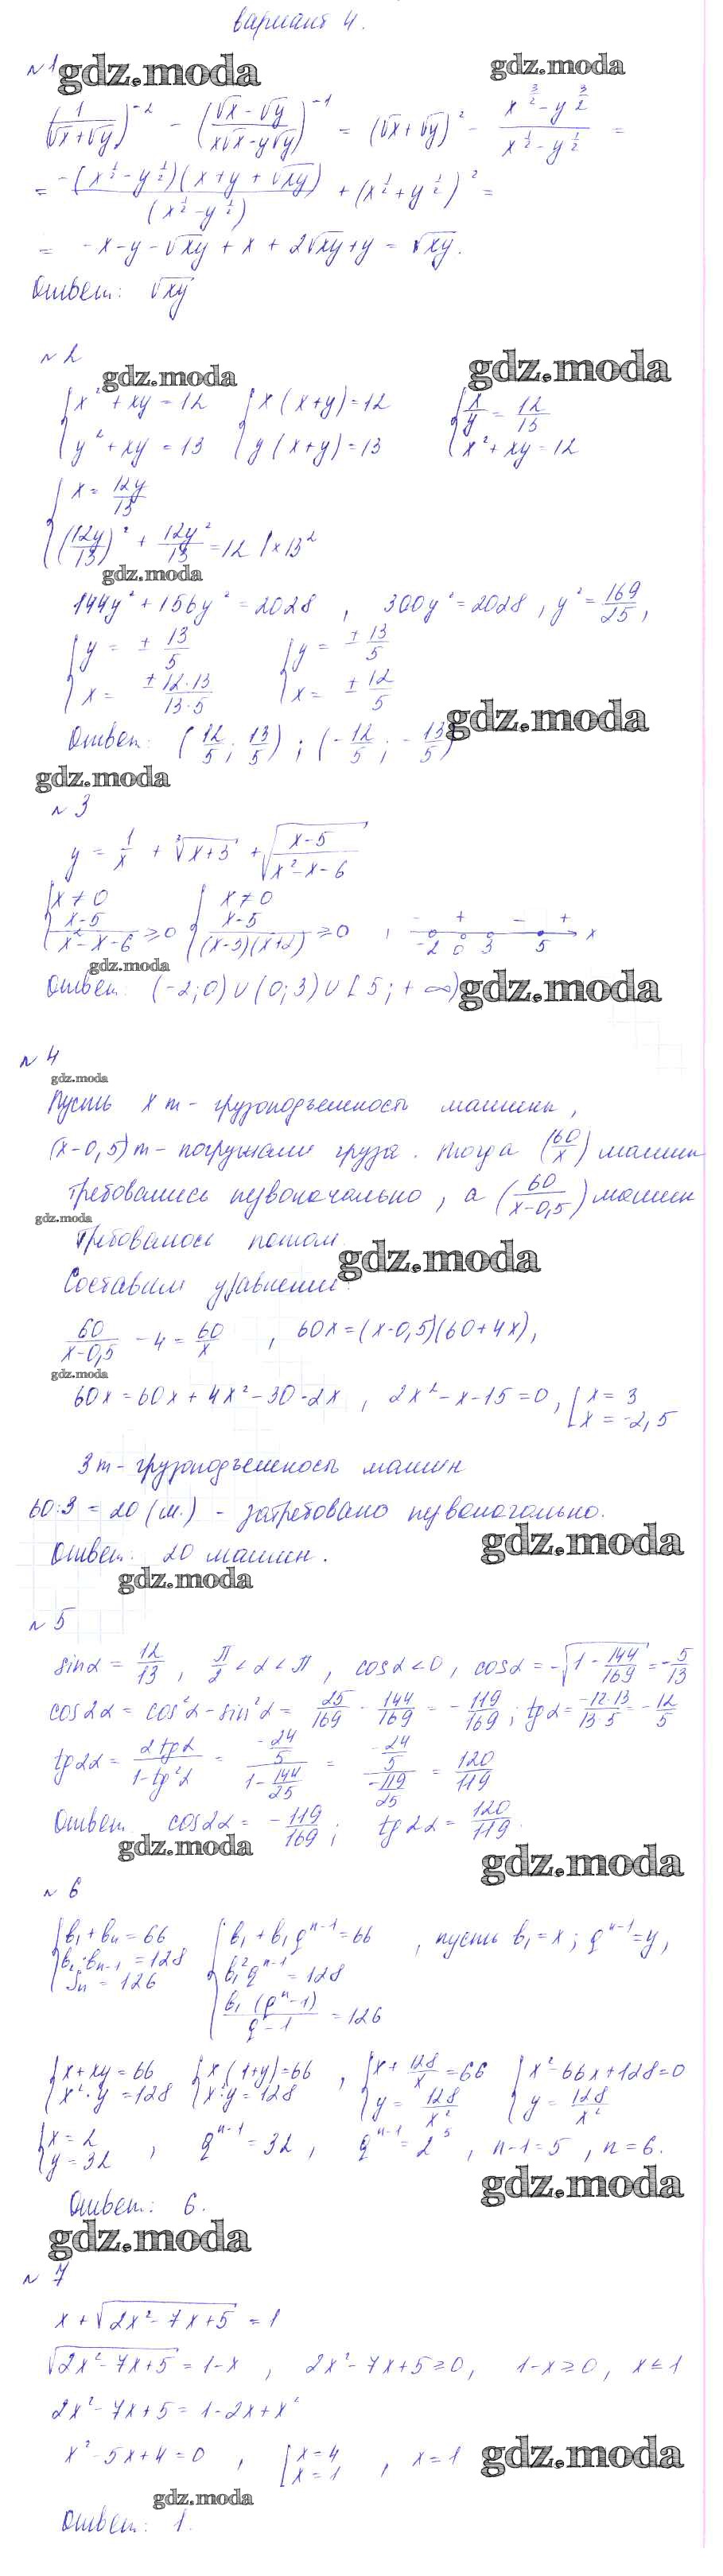 Вариант 4.
№1 gdz.moda gdz.moda
(1/(√x+√y))^-2 - ((√x-√y)/(x√x-y√y))^-1 = (√x+√y)^2 - (x^(3/2)-y^(3/2))/(x^(1/2)-y^(1/2)) =
= -(x^(1/2)-y^(1/2))(x+y+√xy)/(x^(1/2)-y^(1/2)) + (x^(1/2)+y^(1/2))^2 =
= -x-y-√xy+x+2√xy+y = √xy.
Ответ: √xy
№2
gdz.moda gdz.moda
{x²+xy=12 {x(x+y)=12 {x/y=12/13
{y²+xy=13 {y(x+y)=13 {x²+xy=12
{x=12y/13
{(12y/13)²+12y²/13=12 |×13²
gdz.moda
144y²+156y²=2028, 300y²=2028, y²=169/25,
{y=±13/5 {y=±13/5
{x=±12·13/13·5 {x=±12/5
gdz.moda
Ответ: (12/5; 13/5); (-12/5; -13/5)
gdz.moda
№3
y=1/x+∛(x+3)+√((x-5)/(x²-x-6))
{x≠0 {x≠0
{(x-5)/(x²-x-6)≥0 {(x-5)/((x-3)(x+2))≥0, - + - +
-2 0 3 5 x
gdz.moda
Ответ: (-2;0)∪(0;3)∪[5;+∞)
gdz.moda
№4
gdz.moda
Пусть x т - грузоподъемность машины,
(x-0,5)т - погрузили груза. Тогда (60/x) машин
требовались первоначально, а (60/(x-0,5)) машин
gdz.moda
требовалось потом.
gdz.moda
Составим уравнение:
60/(x-0,5)-4=60/x, 60x=(x-0,5)(60+4x),
gdz.moda
60x=60x+4x²-30-2x, 2x²-x-15=0, [x=3
[x=-2,5
3т - грузоподъемность машин
60:3=20(м.) - затребовано первоначально.
gdz.moda
Ответ: 20 машин.
gdz.moda
№5
sinα=12/13, π/2<α<π, cosα<0, cosα=-√(1-144/169)=-5/13
cos2α=cos²α-sin²α=25/169-144/169=-119/169; tgα=-12·13/13·5=-12/5
tg2α=2tgα/(1-tg²α)=(-24/5)/(1-144/25)=(-24/5)/(-119/25)=120/119
Ответ: cos2α=-119/169; tg2α=120/119.
gdz.moda
gdz.moda
№6
{b₁+bₙ=66 {b₁+b₁q^(n-1)=66, пусть b₁=x; q^(n-1)=y,
{b₂·bₙ₋₁=128 {b₁²q^(n-1)=128
{Sₙ=126 {b₁(q^n-1)/(q-1)=126
{x+xy=66 {x(1+y)=66, {x+128/x=66 {x²-66x+128=0
{x²·y=128 {x²y=128 {y=128/x² {y=128/x²
{x=2, q^(n-1)=32, q^(n-1)=2^5, n-1=5, n=6.
{y=32
gdz.moda
Ответ: 6.
gdz.moda
№7
x+√(2x²-7x+5)=1
√(2x²-7x+5)=1-x, 2x²-7x+5≥0, 1-x≥0, x≤1
2x²-7x+5=1-2x+x²
x²-5x+4=0, [x=4, x=1
[x=1
gdz.moda
gdz.moda
Ответ: 1.